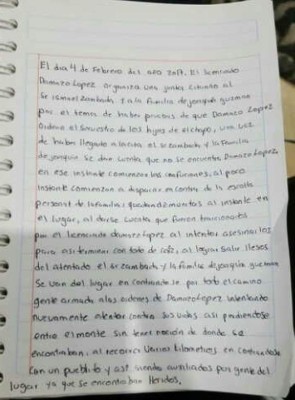 El día 4 de Febrero del año 2017. El licenciado
Damazo Lopez organiza una junta citando al
sr ismael zambada y a la familia de joaquin guzman
por el tema de haber pruebas de que Damazo Lopez
Ordeno el secuestro de los hijos de el chapo, una vez
de haber llegado a la cita el sr zambada y la familia
de joaquin se dan cuenta que no se encuentra Damazo Lopez,
en ese instante comienzan las confuciones, al poco
instante comienzan a disparar en contra de la escolta
personal de la familia quedando muertos al instante en
el lugar, al darse cuenta que fueron traicionados
por el licenciado damazo lopez al intentar asesinarlos
para asi terminar con todo de raiz, al lograr salir ilesos
del atentado el sr zambada y la familia de joaquin guzman
Se van del lugar encontrandose por todo el camino
gente armada a las ordenes de Damazo Lopez intentando
nuevamente atentar contra sus vidas asi perdiendose
entre el monte sin tener nocion de donde se
encontraban, al recorrer varios kilometros encontrandose
con un pueblito y asi siendo auxiliados por gente del
lugar ya que se encontraban heridos,